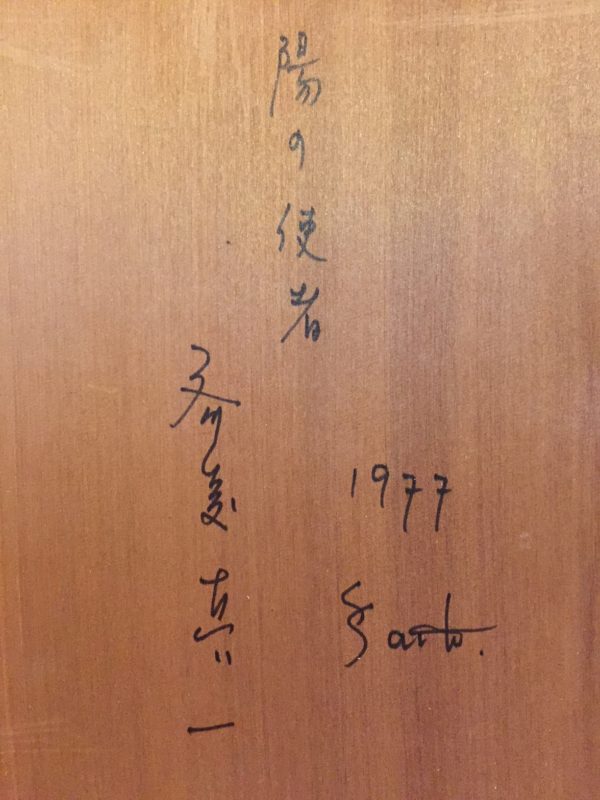 陽の使者
斎藤真一
1977
Saito.